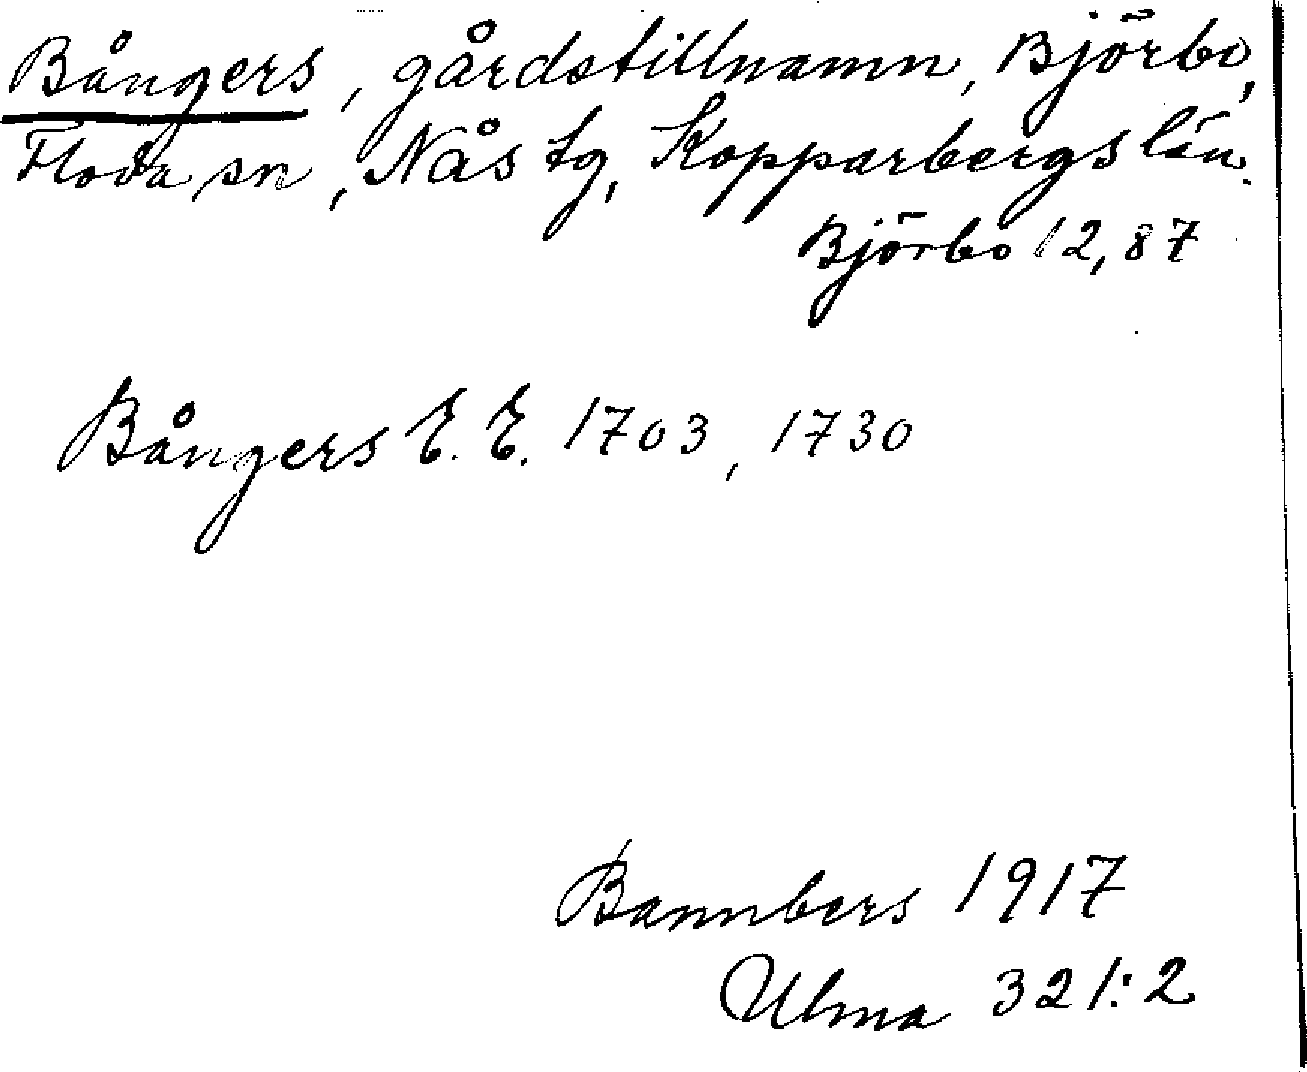 Bångers, gårdstillnamn, Björbo,
Floda sn, Nås tg, Kopparbergs län.
Björbo 12,87
Bångers E. E. 1703, 1730
Bannbers 1917
Ulma 321:2